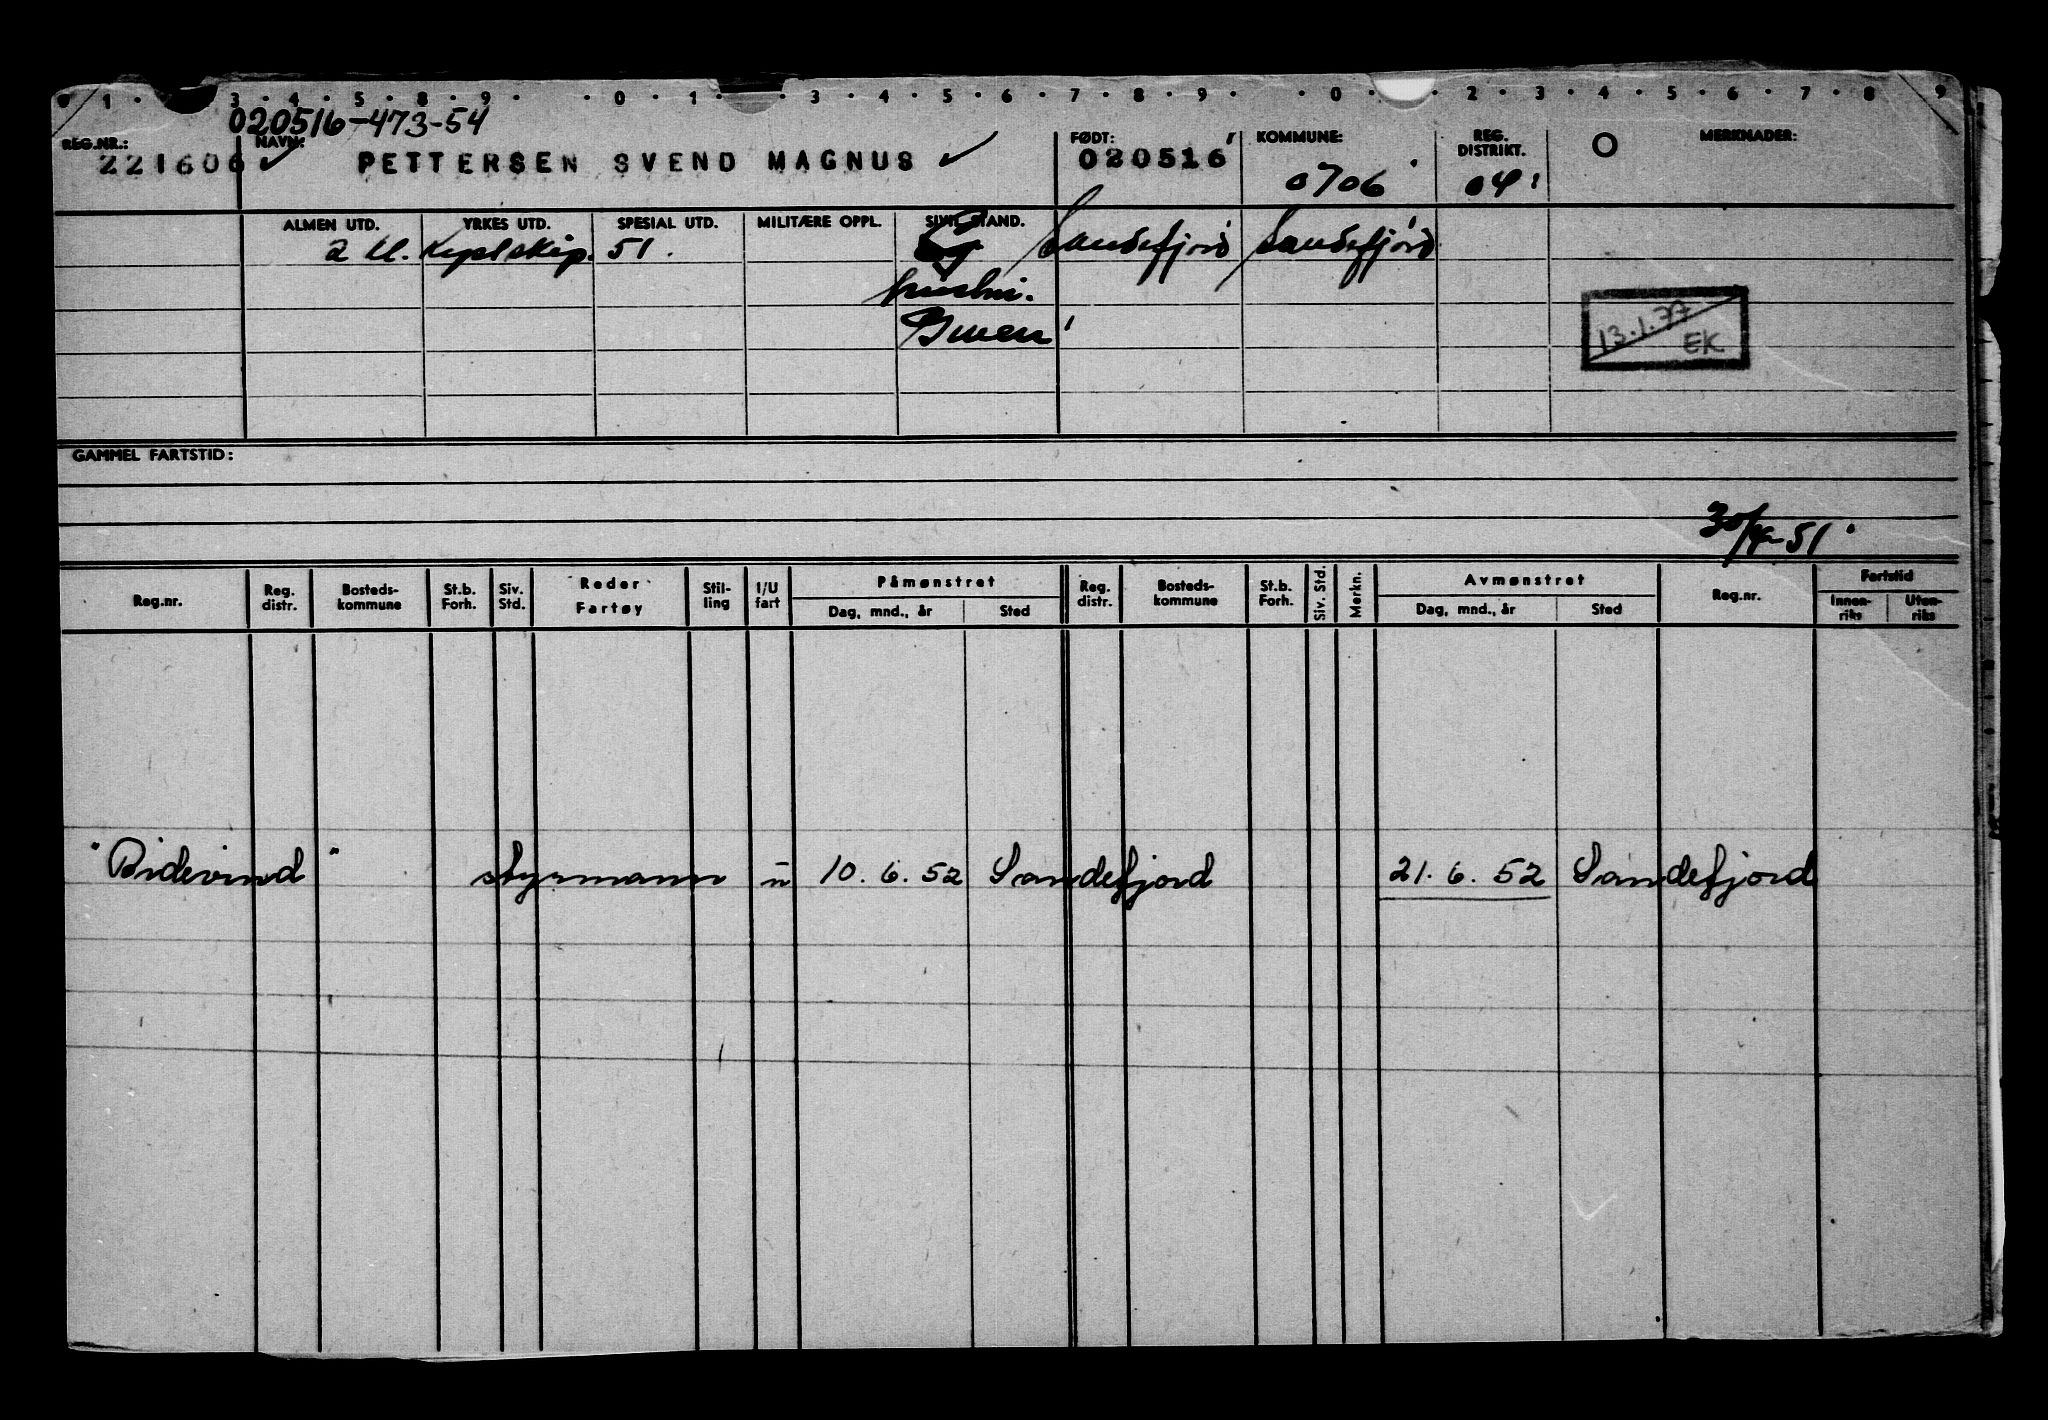 1 · 3 · 4 · 5 · 8 · 9 · · 0 · 1 · · 3 · 4 · 5 · 6 · 7 · 8 · 9 · · 0 · · 2 · 3 · 4 · 5 · 6 · 7 · 8 9
020516-473-54
REG.NR.: NAVN: FØDT: KOMMUNE: REG. DISTRIKT. O MERKNADER:
221606 ✓ PETTERSEN SVEND MAGNUS ✓ 020516 0706 04
ALMEN UTD. YRKES UTD. SPESIAL UTD. MILITÆRE OPPL. SIVIL STAND.
2 kl. 51. Sandefjord Sandefjord
13.1.77
EK
GAMMEL FARTSTID:
51
Reg.nr. Reg. distr. Bosteds-kommune St.b. Forh. Siv. Std. Reder Fartøy Stil-ling I/U fart Påmønstret Dag, mnd., år Sted Reg. distr. Bosteds-kommune St.b. Forh. Siv. Std. Merkn. Avmønstret Dag, mnd., år Sted Reg.nr. Fartstid Innen-riks Uten-riks
"Bidevind" styrmann u 10.6.52 Sandefjord 21.6.52 Sandefjord